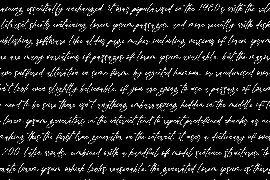 remaining essentially unchanged. it was popularised in the 1960s with the rele
Letraset sheets containing lorem ipsum passages, and more recently with deskt
publishing software like aldus page maker including versions of lorem ipsum
are many variations of passages of lorem ipsum available, but the major
have suffered alteration in some form, by injected humour, or randomised wor
don't look even slightly believable. if you are going to use a passage of lorem
need to be sure there isn't anything embarrassing hidden in the middle of t
lorem ipsum generators on the internet tend to repeat predefined chunks as ne
making this the first true generator on the internet. it uses a dictionary of over
200 latin words, combined with a handful of model sentence structures, to
generate lorem ipsum which looks reasonable. the generated lorem ipsum is there